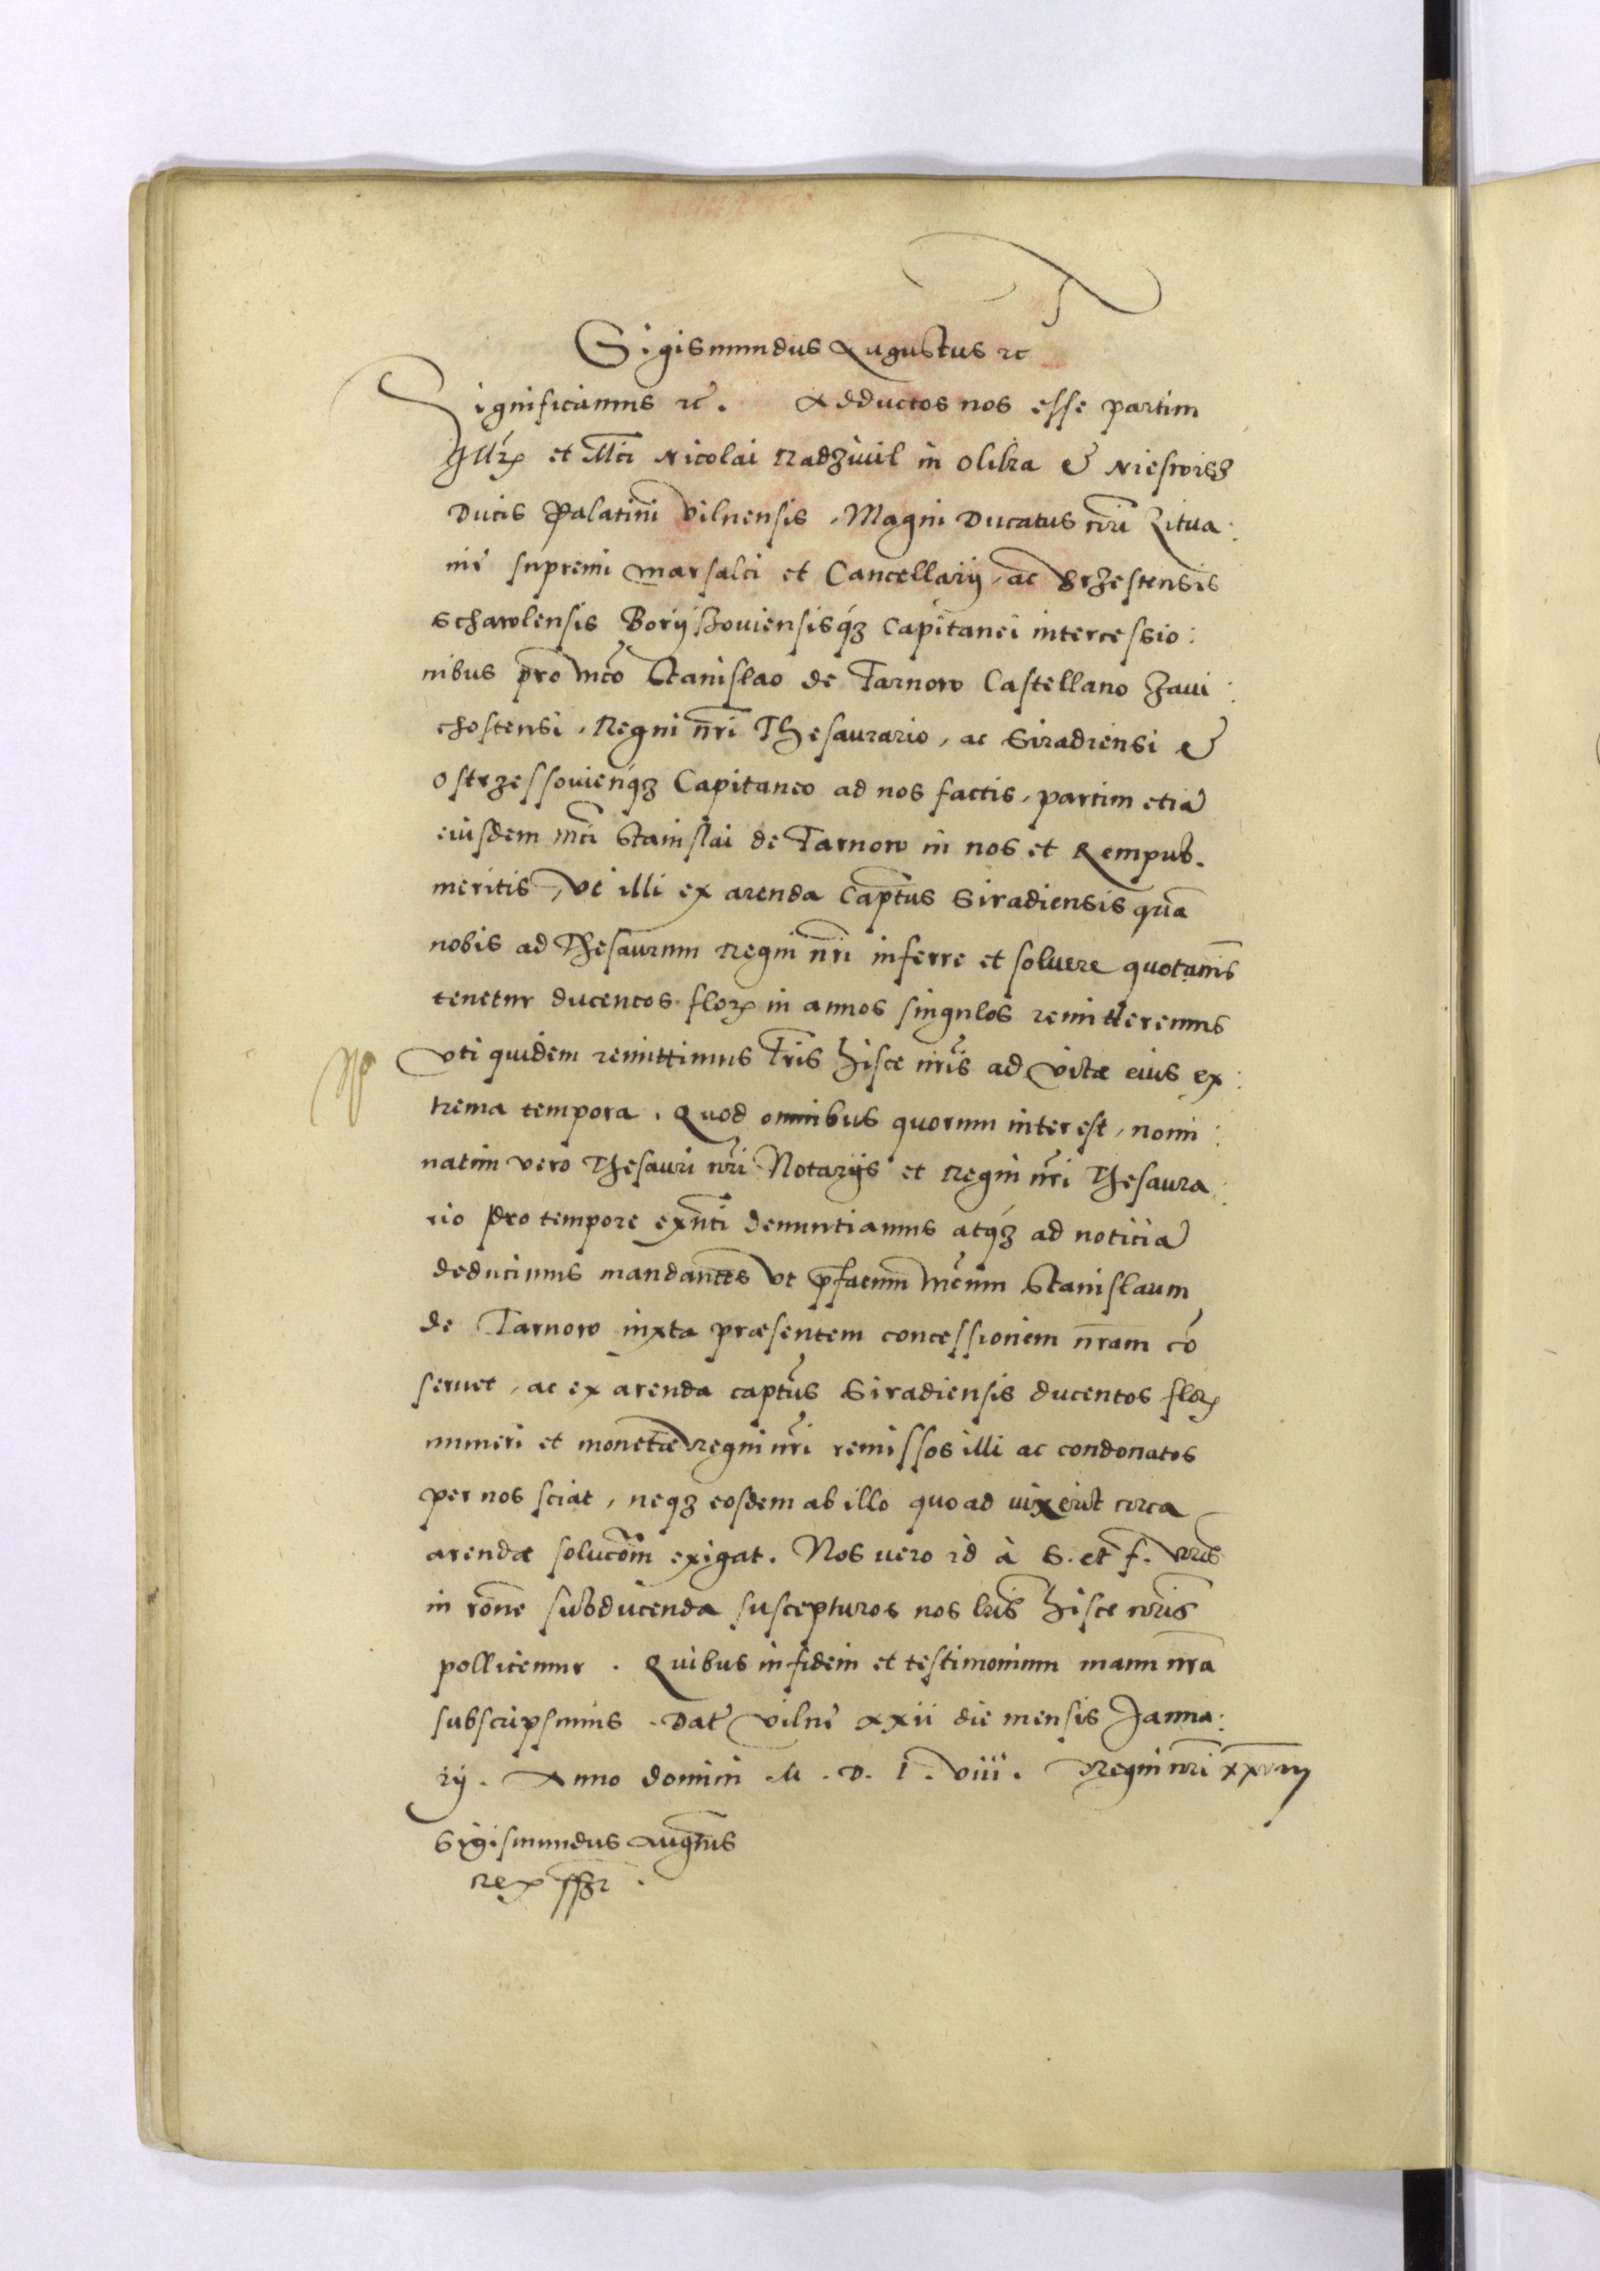 Sigismundus Augustus ꝛc
Significamus ꝛc. Adductos nos esse partim
Illr̃ et Mci Nicolai Radziuil in Olika & Nieswisz
Ducis Palatini Vilnensis, Magni Ducatus nri Litua:
nie supremi marsalci et Cancellarij, ac Brzestensis
Schawlensis Boryszouiensisqȝ Capitanei intercessio:
nibus pro Mco Stanislao de Tarnow Castellano Zaui:
chostensi, Regni nri Thesaurario, ac Siradiensi &
Ostrzessouienqȝ Capitaneo ad nos factis, partim etiã
eiusdem Mci Stanislai de Tarnow in nos et Rempub.
meritis, vt illi ex arenda Captus Siradiensis quã
nobis ad Thesaurum Regni nri inferre et soluere quotannis
tenetur ducentos flor in annos singulos remitteremus
vti quidem remittimus lris hisce nris ad vitæ eius ex:
trema tempora. Quod omnibus quorum interest, nomi:
natim vero Thesauri nri Notarijs et Regni nri Thesaura:
rio pro tempore exnti denuntiamus atqȝ ad noticiã
deducimus mandantes vt pfatum Mcum Stanislaum
de Tarnow iuxta præsentem concessionem nram cõ
seruet, ac ex arenda captus Siradiensis ducentos flor
numeri et monetæ Regni nri remissos illi ac condonatos
per nos sciat, neqȝ eosdem ab illo quo ad uixerit circa
arendæ solucom exigat. Nos vero id à S. et f. vris
in rone subducenda suscepturos nos lris hisce nris
pollicemur. Quibus in fidem et testimonium manu nra
subscripsimus. Dat Vilne xxii die mensis Janua:
rij. Anno domini M. D. L. viii. Regni nri xxviij
Sigismundus Augustus
Rex sszt.